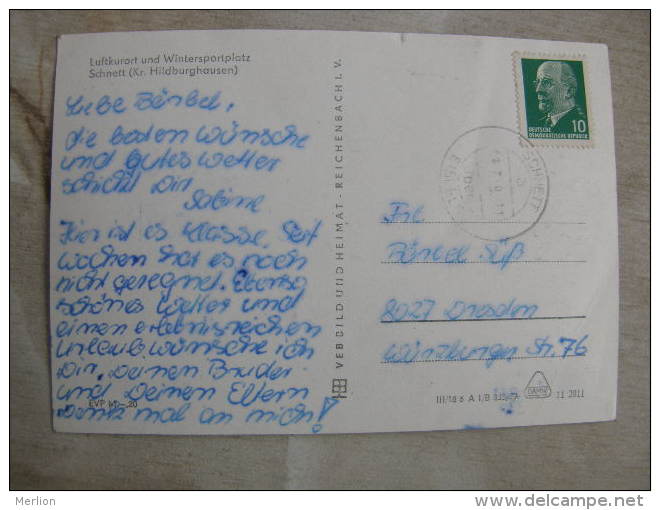 Luftkurort und Wintersportplatz
Schnett (Kr. Hildburghausen)
Liebe Bärbel,
die besten Wünsche
und gutes Wetter
schickt Dir
Sabine
Hier ist es Klasse. Seit
Wochen hat es noch
nicht geregnet. Ebenso
schönes Wetter und
einen erlebnisreichen
Urlaub wünsche ich
Dir, Deinen Bruder
und Deinen Eltern
Denk mal an mich!
EVP 20
VEB BILD UND HEIMAT · REICHENBACH I. V.
10
DEUTSCHE
DEMOKRATISCHE REPUBLIK
SCHNETT
Frl.
Bärbel Süß
8027 Dresden
Würzburger Str. 76
III/18 6 A 1/B
11 2811
Merlion
delcampe.net